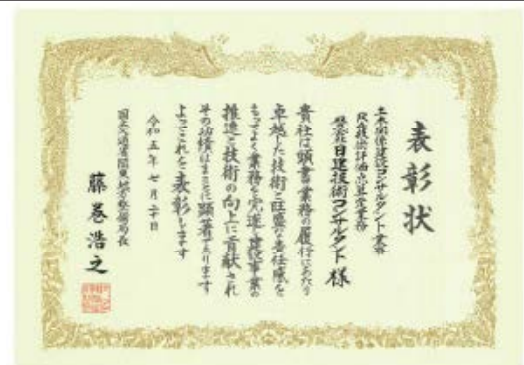 表彰状
土木関係建設コンサルタント業務
R4技術評価点算定業務
株式会社日建技術コンサルタント 様
貴社は頭書業務の履行にあたり
卓越した技術と旺盛な責任感を
もってよく業務を完遂し建設事業の
推進と技術の向上に貢献され
その功績はまことに顕著であります
よってこれを表彰します
令和五年七月二十日
国土交通省関東地方整備局長
藤巻浩之